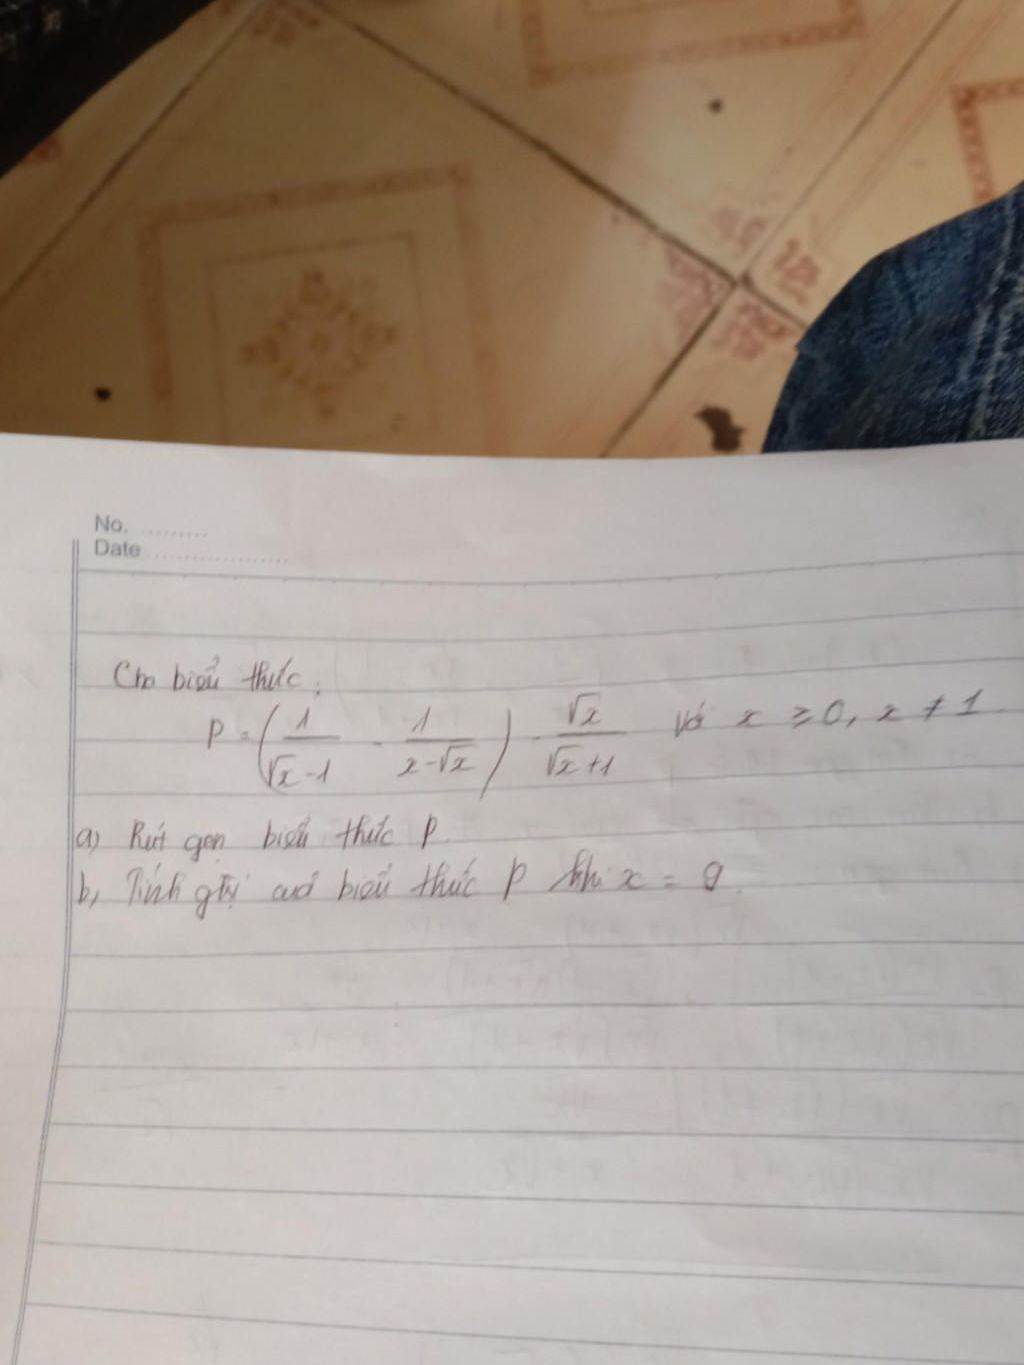 No. .........
Date ..................
Cho biểu thức:
P = (1/(√x - 1) - 1/(x - √x)) - √x/(√x + 1) với x ≥ 0, x ≠ 1.
a) Rút gọn biểu thức P.
b, Tính gtrị của biểu thức P khi x = 9.